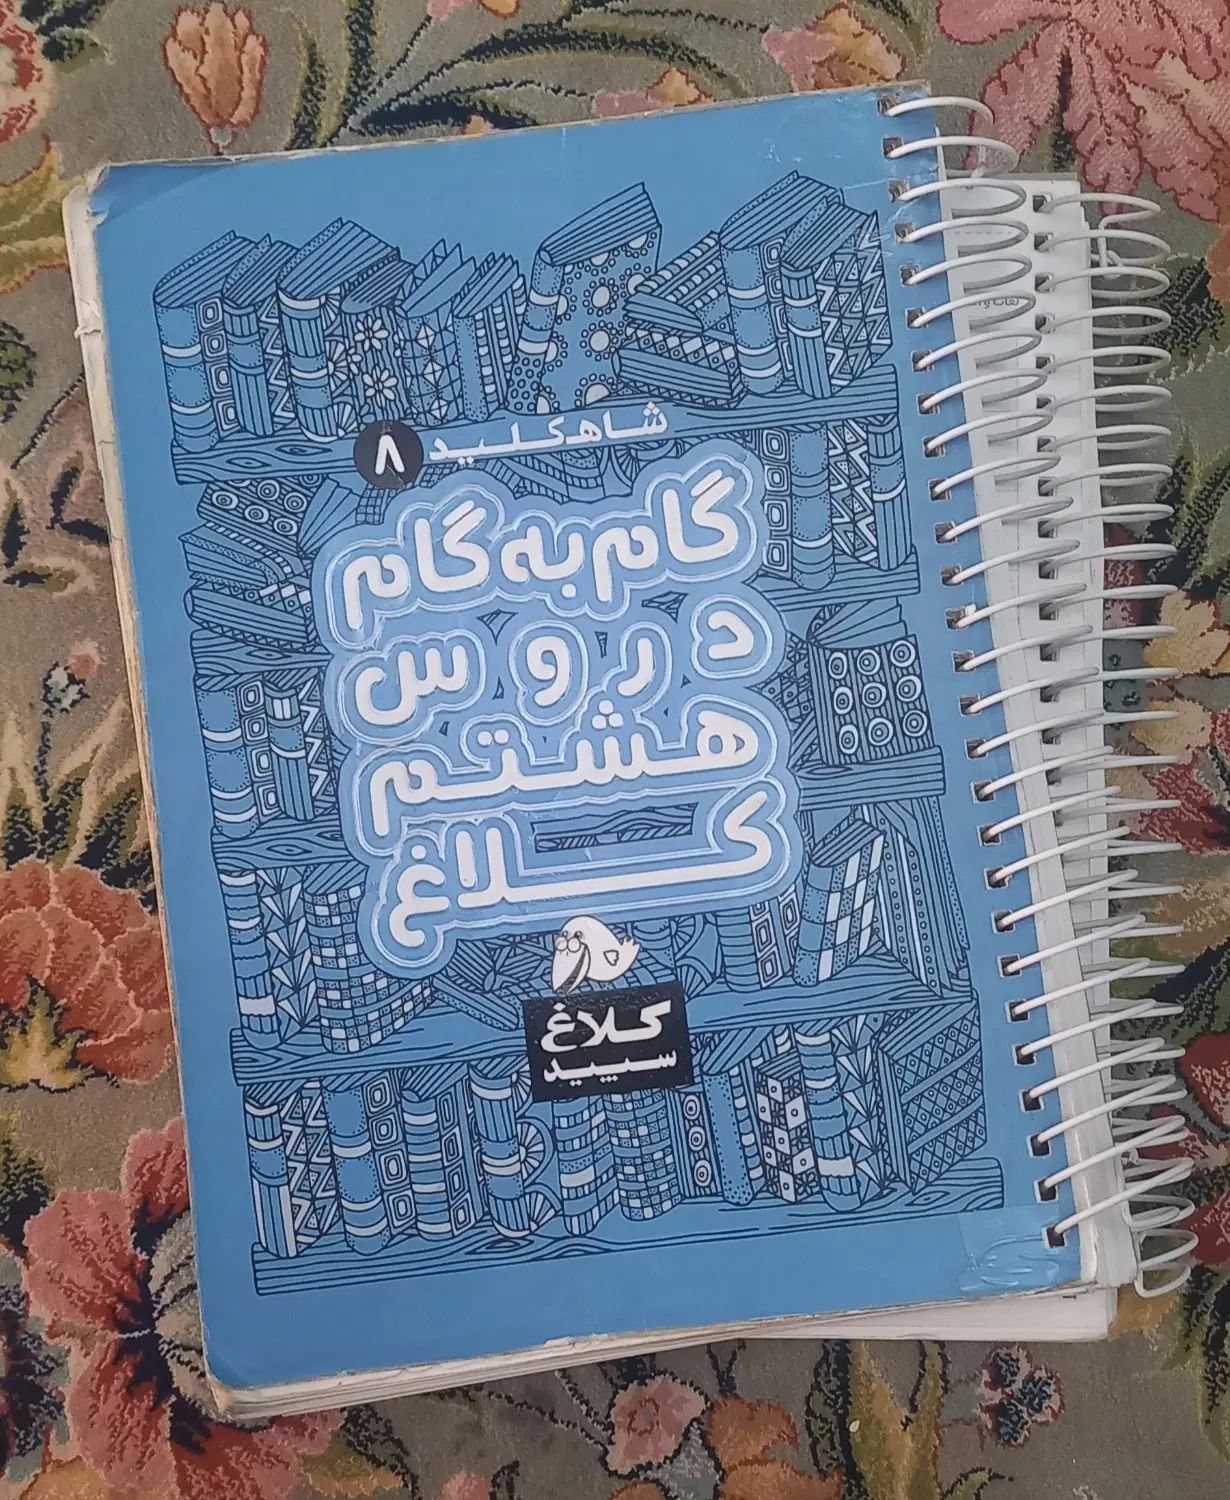 شاه‌کلید ۸
گام به گام
دروس
هشتم
کلاغ
کلاغ
سپید